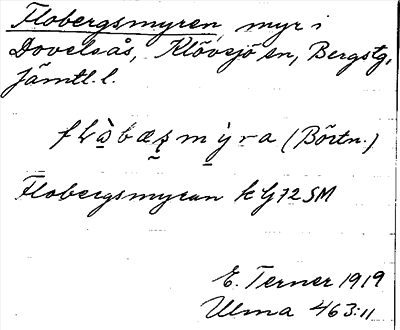 Flobergsmyren, myr i
Dovelsås, Klövsjö sn, Bergs tg,
Jämtl. l.
flåbæʂmỳra (Börtn.)
Flobergsmyran k GJ 72 SM
E. Terner 1919
Ulma 463:11